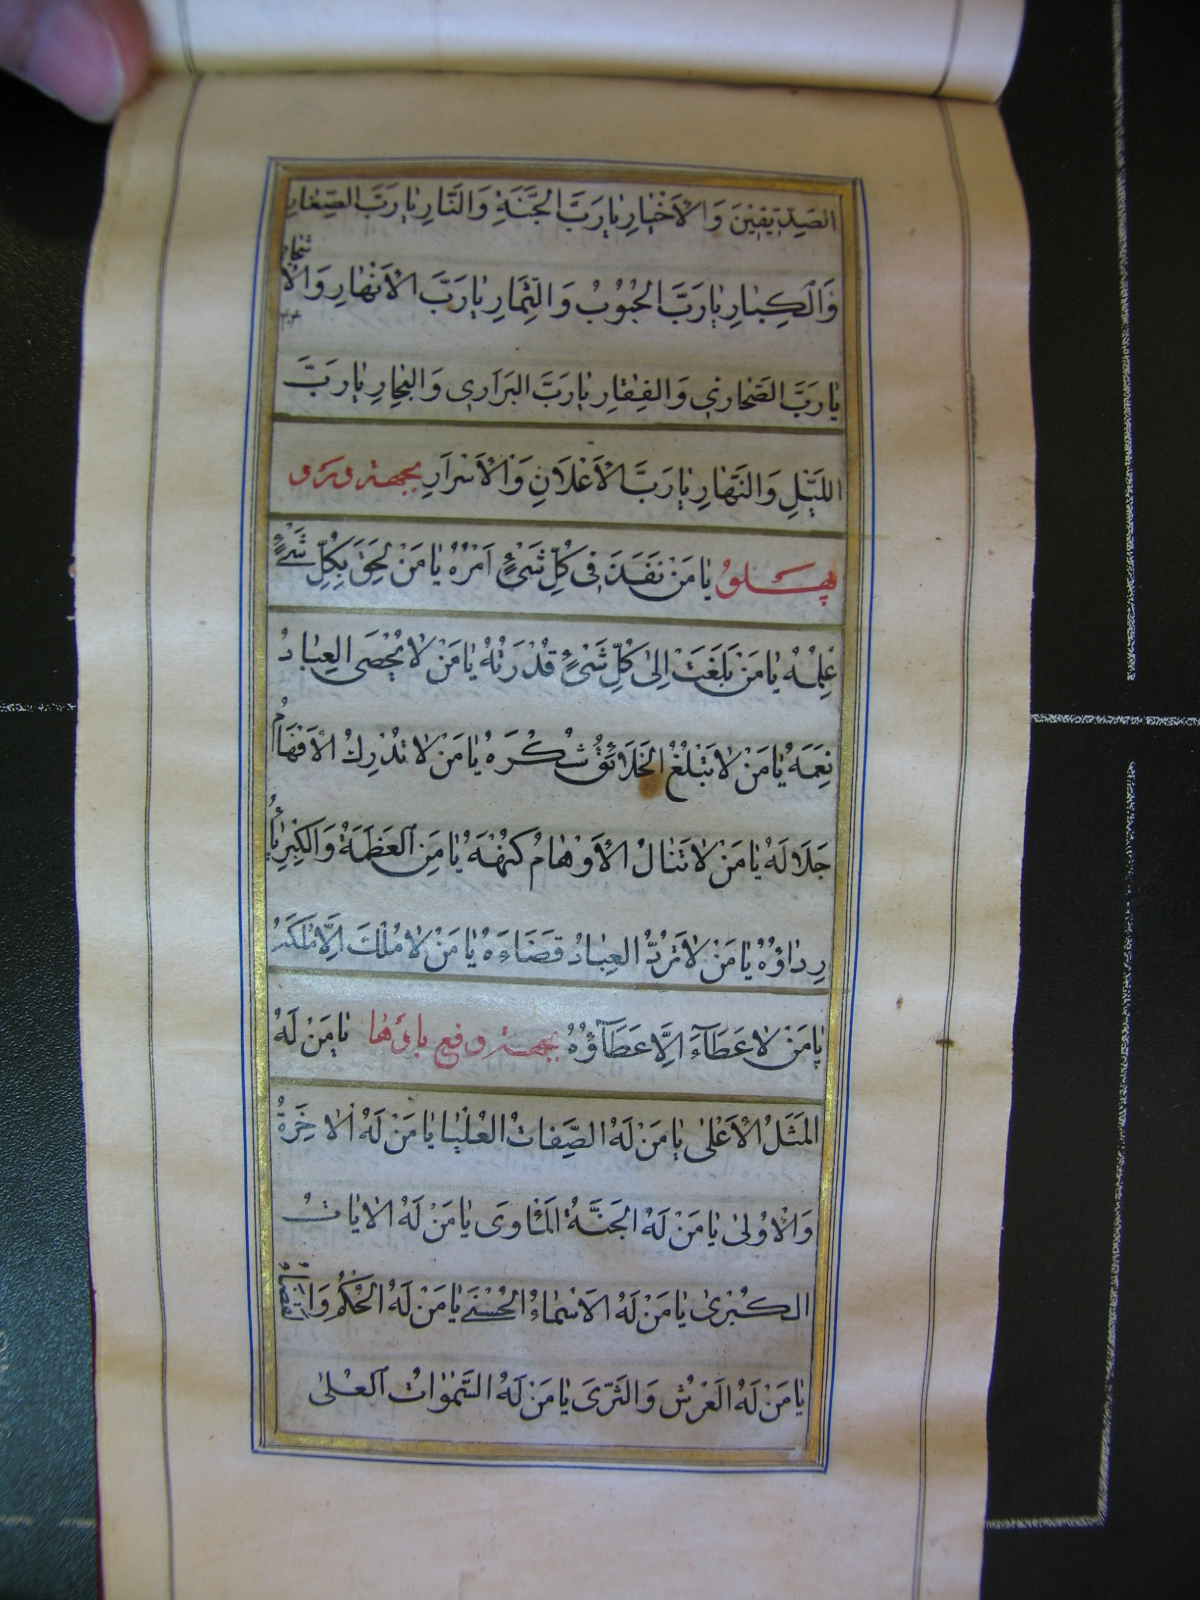 الصِّدِّيقِينَ وَالْاَخْيارِ يا رَبَّ الْجَنَّةِ وَالنَّارِ يا رَبَّ الصِّغارِ
وَالْكِبارِ يا رَبَّ الْحُبُوبُ وَالثِّمارِ يا رَبَّ الْاَنْهارِ وَالْاَشْجارِ
يا رَبَّ الصَّحارى وَالْقِفارِ يا رَبَّ الْبَرارى وَالْبِحارِ يا رَبَّ
اللَّيْلِ وَالنَّهارِ يا رَبَّ الْاَعْلانِ وَالْاَسْرارِ بجهة درد
پهلو يا مَنْ نَفَذَ فى كُلِّ شَىْءٍ اَمْرُهُ يا مَنْ لَحِقَ بِكُلِّ شَىْءٍ
عِلْمُهُ يا مَنْ بَلَغَتْ اِلى كُلِّ شَىْءٍ قُدْرَتُهُ يا مَنْ لا يُحْصِى الْعِبادُ
نِعَمَهُ يا مَنْ لا تَبْلُغُ الْخَلائِقُ شُكْرَهُ يا مَنْ لا تُدْرِكُ الْاَفْهامُ
جَلالَهُ يا مَنْ لا تَنالُ الْاَوْهامُ كُنْهَهُ يا مَنِ الْعَظَمَةُ وَالْكِبْرِياءُ
رِداؤُهُ يا مَنْ لا تَرُدُّ الْعِبادُ قَضاءَهُ يا مَنْ لا مُلْكَ اِلَّا مُلْكُهُ
يا مَنْ لا عَطاءَ اِلَّا عَطاؤُهُ بجهة دفع يا مَنْ لَهُ
الْمَثَلُ الْاَعْلى يا مَنْ لَهُ الصِّفاتُ الْعُلْيا يا مَنْ لَهُ الْاٰخِرَةُ
وَالْاُولىٰ يا مَنْ لَهُ الْجَنَّةُ الْمَأْوى يا مَنْ لَهُ الْاٰياتُ
الْكُبْرىٰ يا مَنْ لَهُ الْاَسْماءُ الْحُسْنىٰ يا مَنْ لَهُ الْحُكْمُ وَالْقَضاءُ
يا مَنْ لَهُ الْعَرْشُ وَالثَّرى يا مَنْ لَهُ السَّمٰواتُ الْعُلىٰ